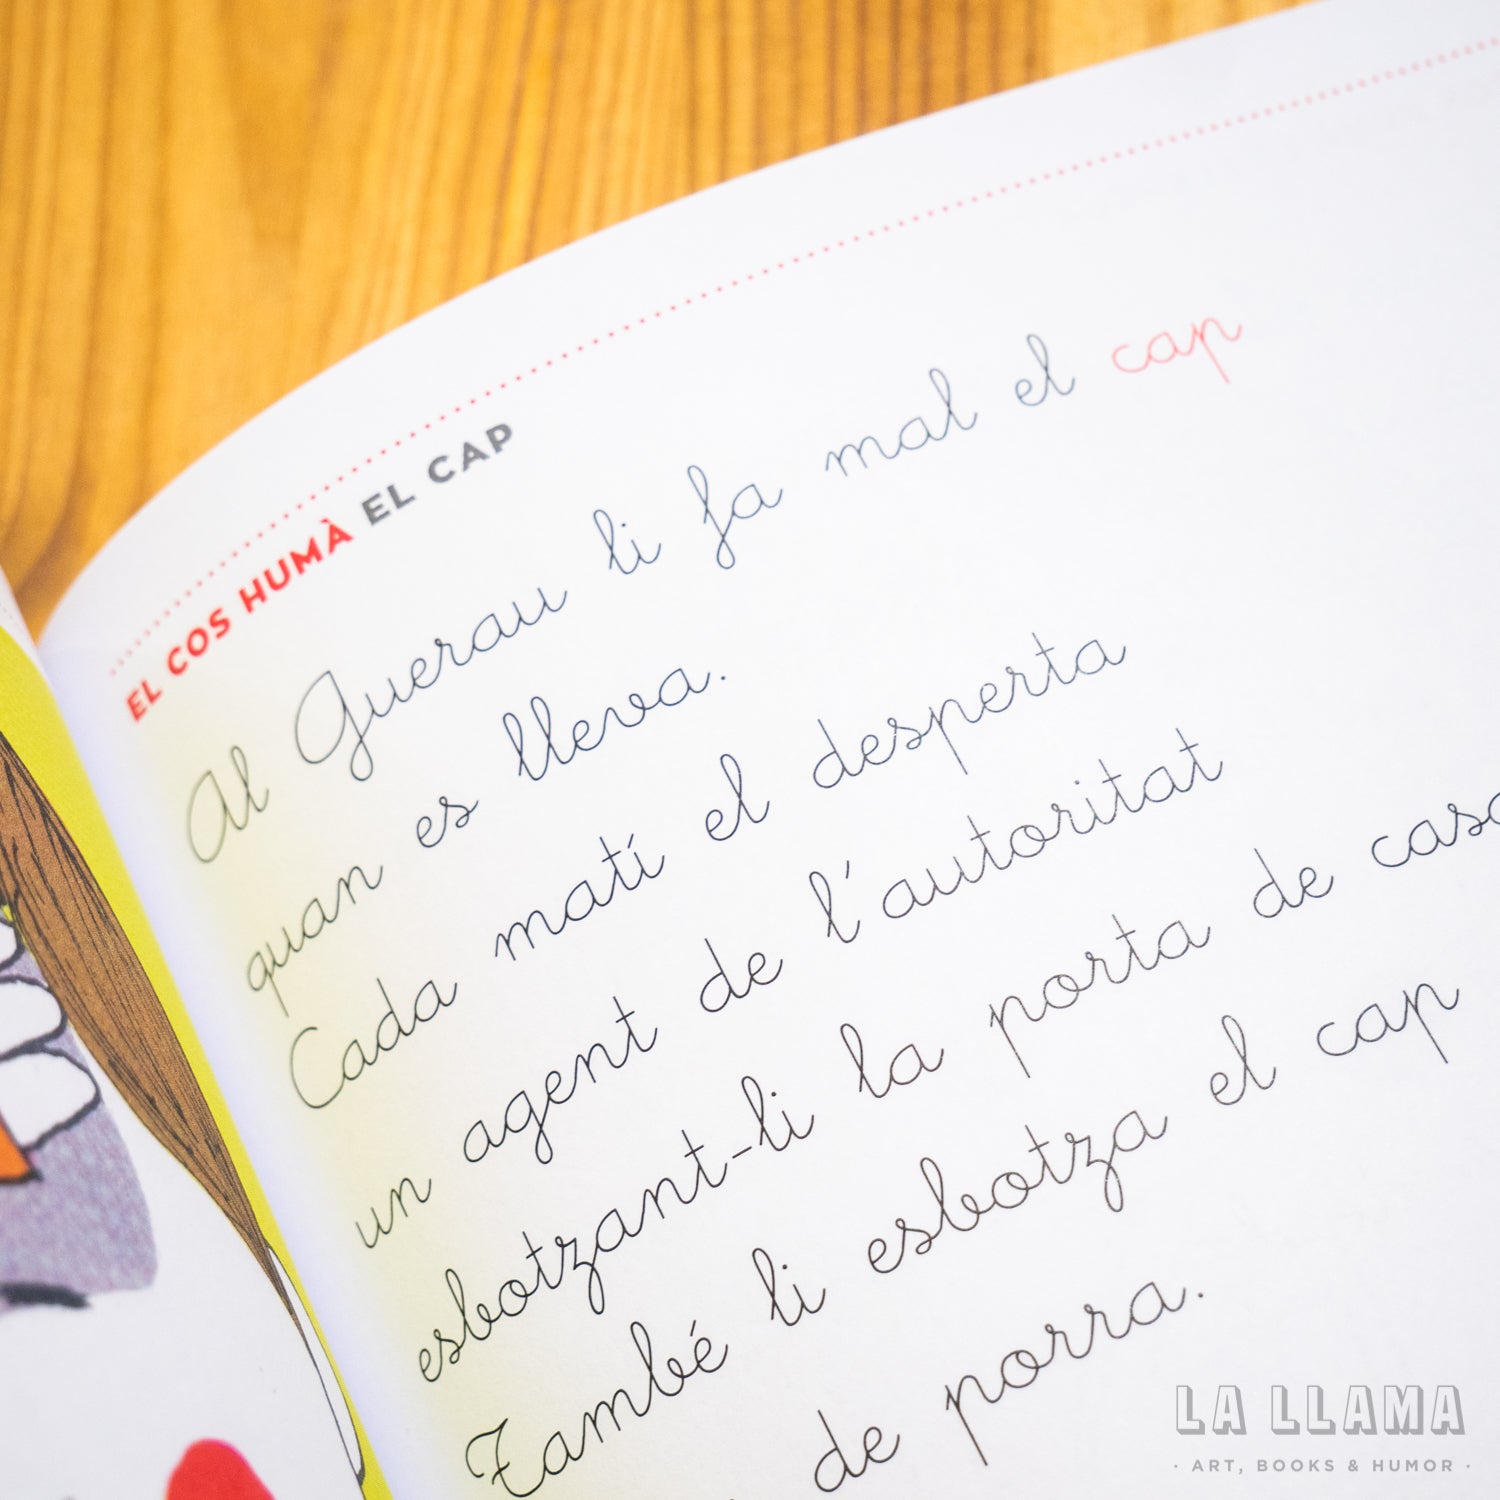 EL COS HUMÀ EL CAP
Al Guerau li fa mal el cap
quan es lleva.
Cada matí el desperta
un agent de l'autoritat
esbotzant-li la porta de casa
També li esbotza el cap
de porra.
LA LLAMA
· ART, BOOKS & HUMOR ·